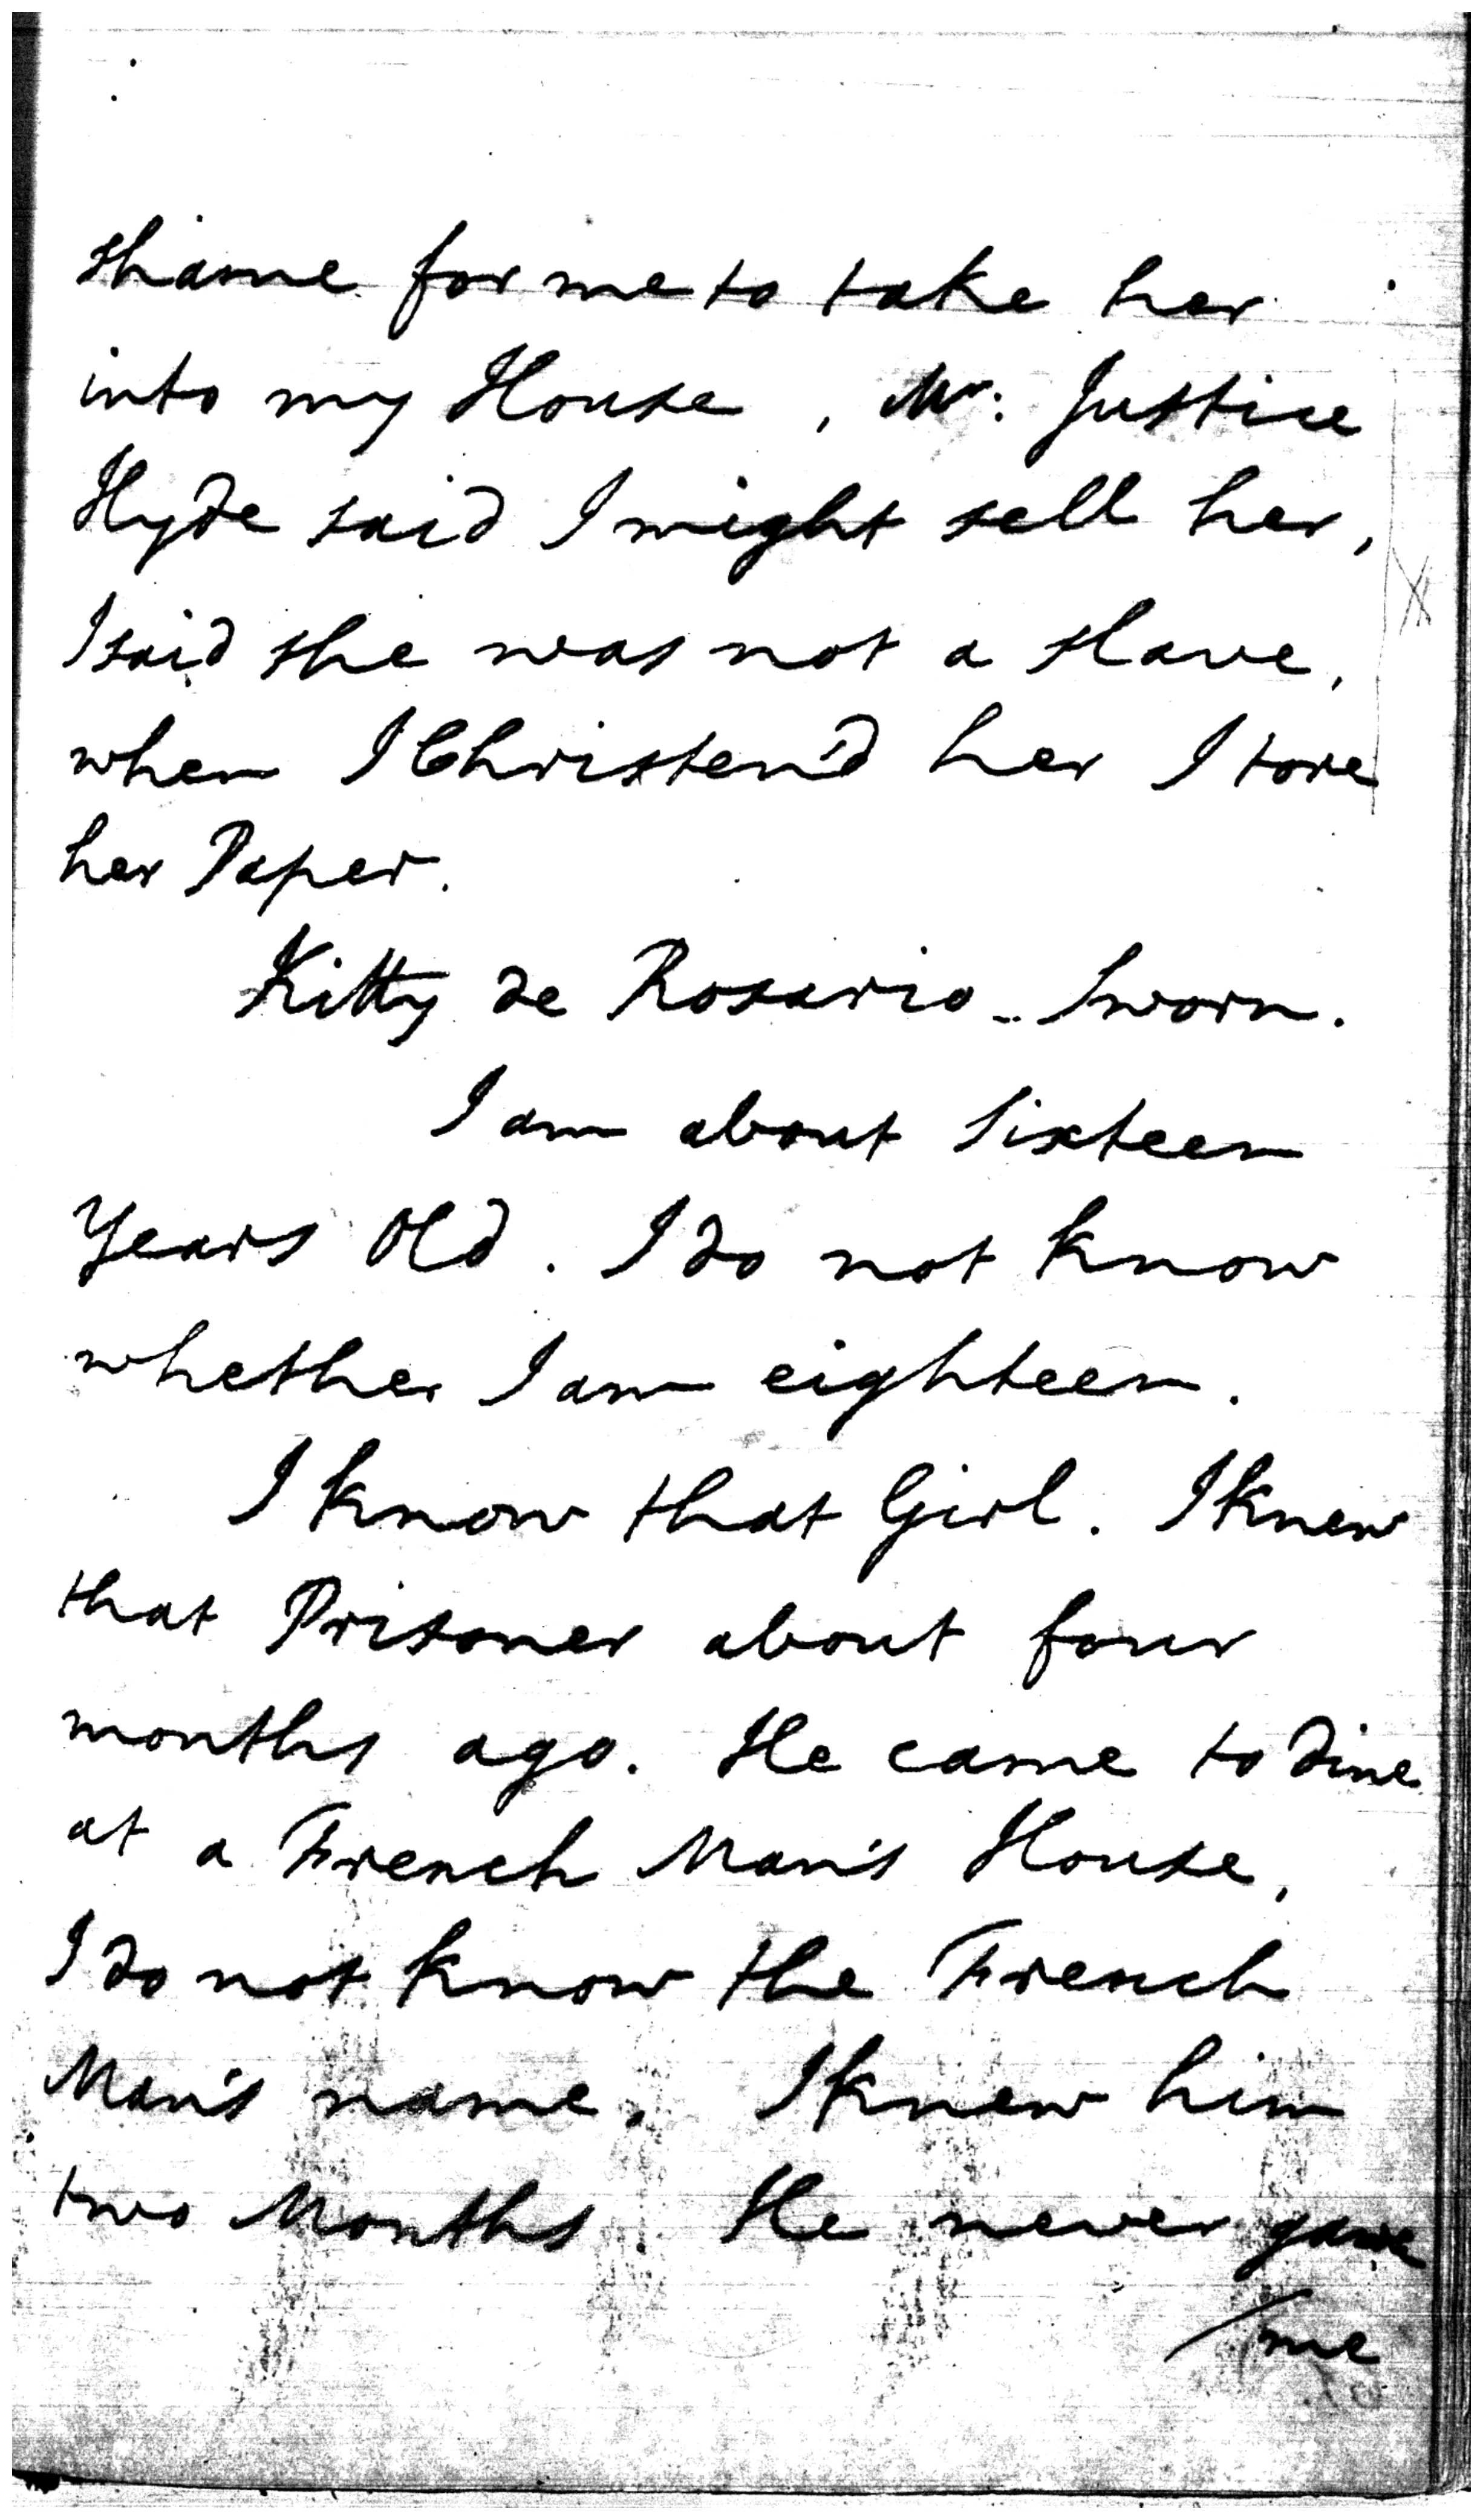 shame for me to take her
into my House, Mr: Justice
Hyde said I might sell her,
I said she was not a slave,
when I Christen'd her I tore
her Paper.
Kitty de Rosario.. Sworn.
I am about Sixteen
Years Old. I do not know
whether I am eighteen.
I know that Girl. I knew
that Prisoner about four
months ago. He came to dine
at a French Man's House,
I do not know the French
Man's name. I knew him
two Months. He never gave
/me